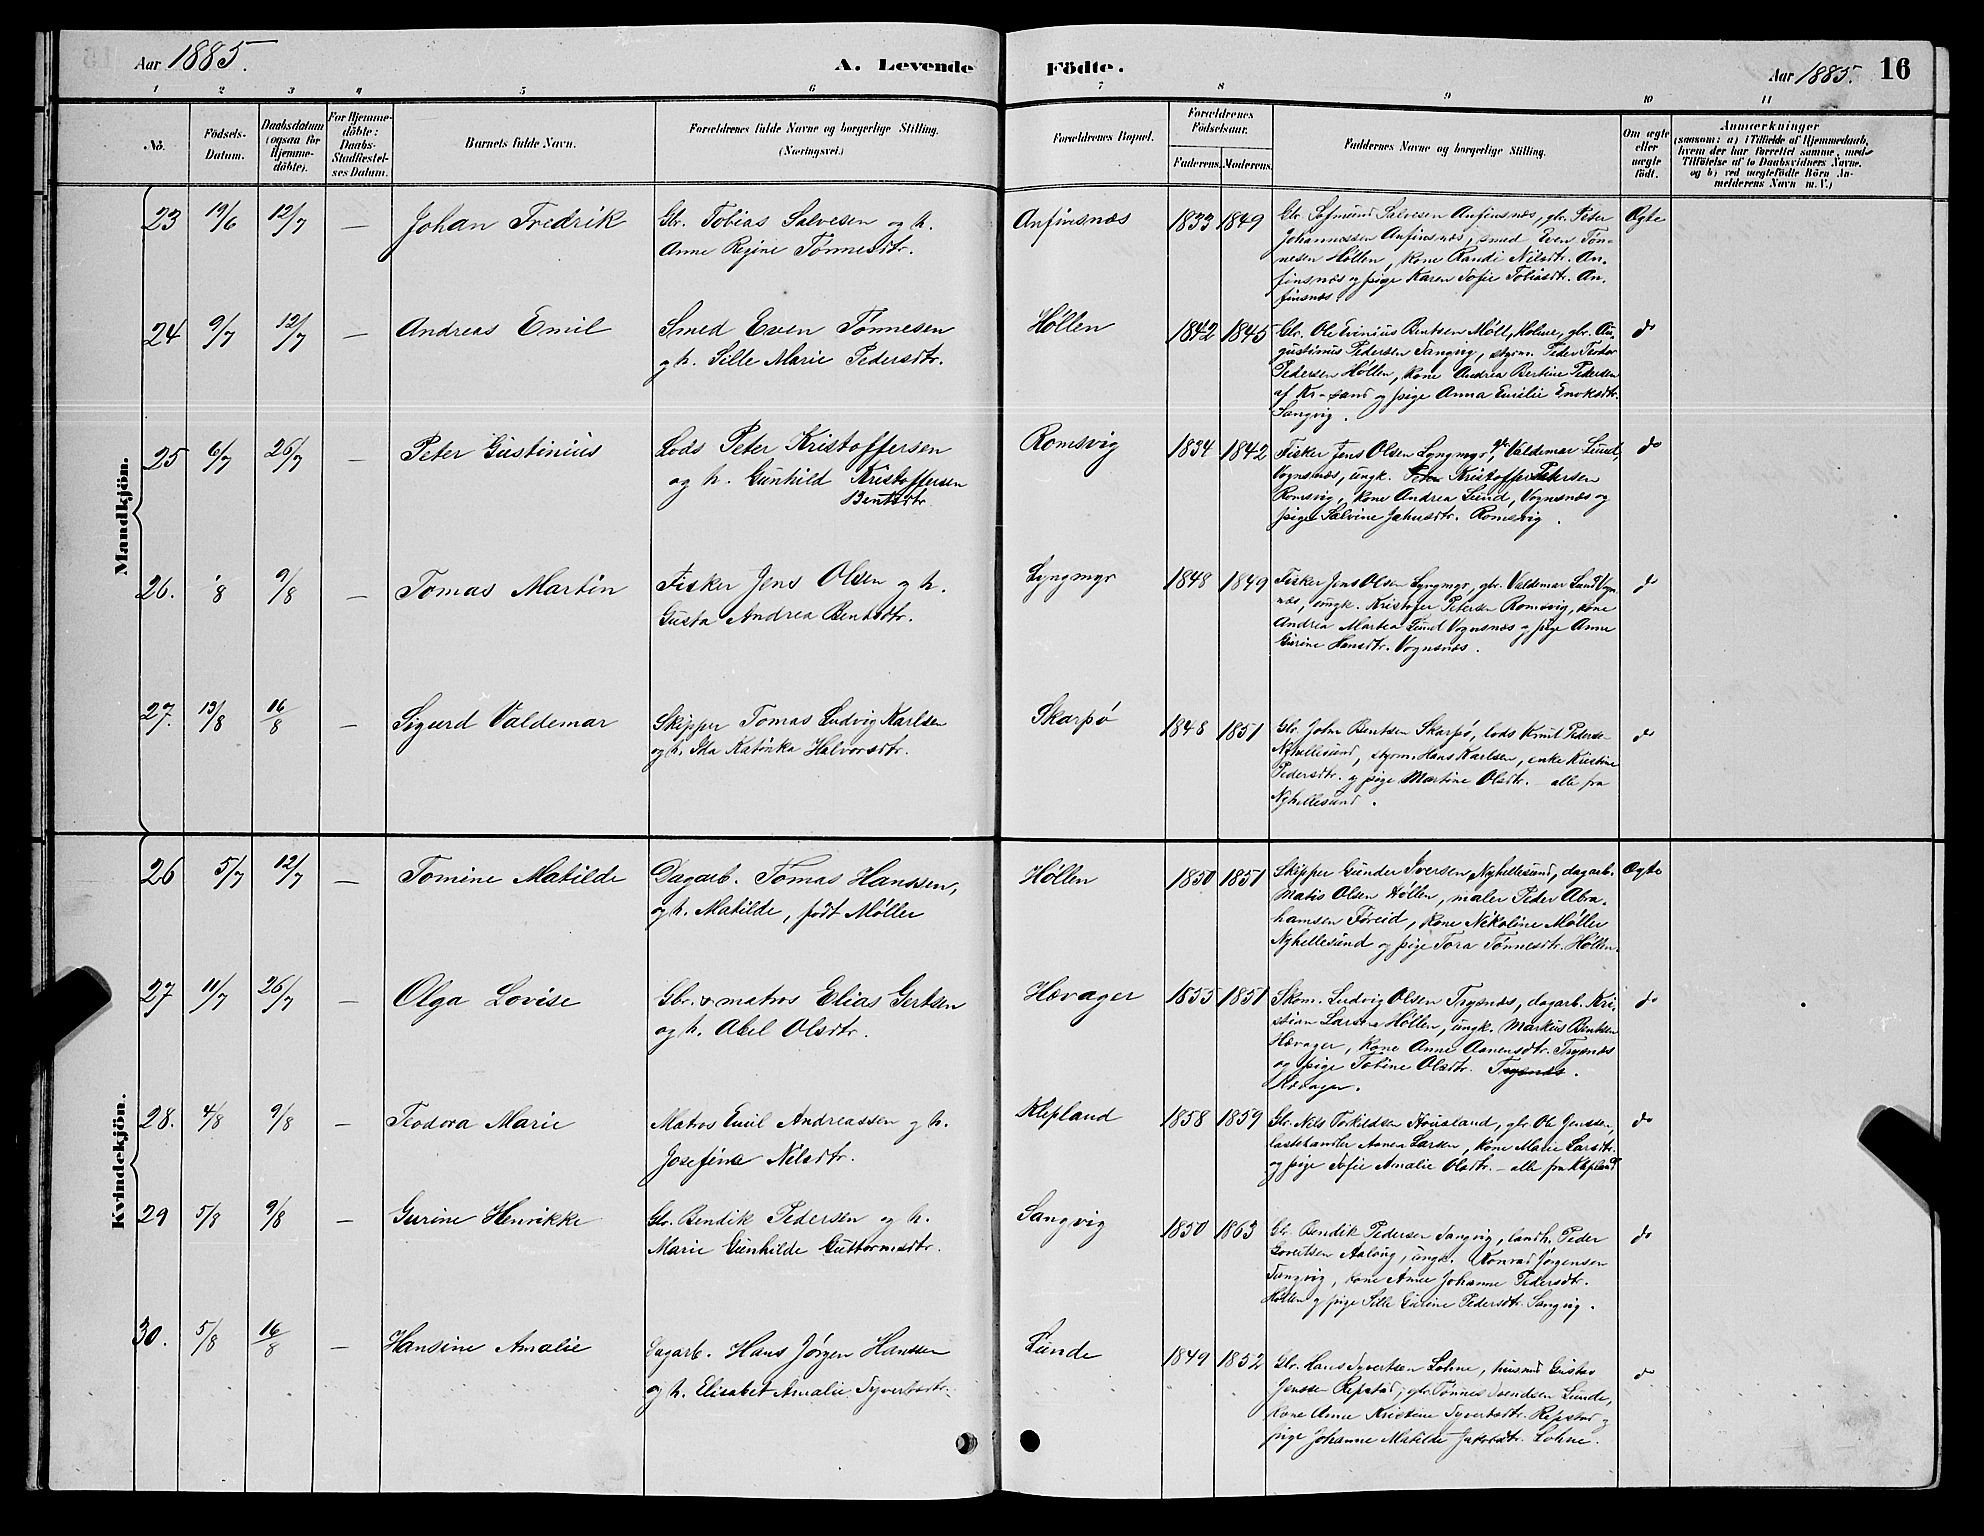 Aar 1885.
A. Levende
Födte.
Aar 1885. 16
1 2 3 4 5 6 7 8 9 10 11
No.
Födsels-
Datum.
Daabsdatum
(ogsaa for
Hjemme-
döbte).
For Hjemme-
döbte:
Daabs-
Stadfæstel-
ses Datum.
Barnets fulde Navn.
Forældrenes fulde Navne og borgerlige Stilling.
(Næringsvei.)
Forældrenes Bopæl.
Forældrenes
Födselsaar.
Faderens. Moderens.
Faddernes Navne og borgerlige Stilling.
Om ægte
eller
uægte
födt.
Anmærkninger
(saasom: a) i Tilfælde af Hjemmedaab,
hvem der har forrettet samme, med
Tilföielse af to Daabsvidners Navne,
og b) ved uægtefödte Börn An-
melderens Navn m. V.)
Mandkjön.
23 19/6 12/7 — Johan Fredrik
Gbr. Tobias Salvesen og h.
Anne Regine Tønnesdtr.
Anfinsnæs 1833 1849
Gbr. Salvesen Anfinsnæs, gbr. Peter
Johannessen Anfinsnæs, smed Even Tøn-
nesen Høllen, kone Randi Nilsdtr. An-
finsnæs og pige Karen Sofie Tobiasdtr. An-
finsnæs.
Ægte
24 9/7 12/7 — Andreas Emil
Smed Even Tønnesen
og h. Sille Marie Pedersdtr.
Høllen 1842 1845
Gbr. Ole Bentsen Holme, gbr. Au-
gustinius Pedersen Sangvig, styrm. Peder Teodor
Pedersen Høllen, kone Andrea Bertine Pedersen
af Kr-sand og pige Anna Emilie Enoksdtr.
Sangvig.
do
25 6/7 26/7 — Peter Gustinius
Lods Peter Kristoffersen
og h. Gunhild Kristoffersen
Bentsdtr.
Romsvig 1834 1842
Fisker Jens Olsen Lyngmyr, gbr. Valdemar Lund,
Vognsnæs, ungk. Kristoffer Petersen
Romsvig, kone Andrea Lund, Vognsnæs og
pige Salvine Jahnsdtr. Romsvig.
do
26. 8 9/8 — Tomas Martin
Fisker Jens Olsen og h.
Gusta Andrea Bentsdtr.
Lyngmyr 1848 1849
Fisker Jens Olsen Lyngmyr, gbr. Valdemar Lund Vogn-
næs, ungk. Kristofer Petersen Romsvig, kone
Andrea Martea Lund Vognsnæs og pige Anne
Gurine Hansdtr. Vognsnæs.
do
27. 13/8 16/8 — Sigurd Valdemar
Skipper Tomas Ludvig Karlsen
og h. Ida Katinka Halvorsdtr.
Skarpø 1848 1851
Gbr. John Bentsen Skarpø, lods Knut Pedersen
Nyhellesund, styrm. Hans Karlsen, enke Kristine
Pedersdtr. og pige Martine Olsdtr. - alle fra
Nyhellesund.
do
Kvindekjön.
26 5/7 12/7 — Tomine Matilde
Dagarb. Tomas Hanssen,
og h. Matilde, født Møller
Høllen 1850 1851
Skipper Gunder Iversen Nyhellesund, dagarb.
Matis Olsen Høllen, maler Peder Abra-
hamsen Føreid, kone Nikoline Møller
Nyhellesund og pige Tora Tønnesdtr. Høllen.
Ægte
27 11/7 26/7 — Olga Lovise
Gbr. & matros Elias Gertsen
og h. Abel Olsdtr.
Hævager 1855 1851
Skom. Ludvig Olsen Trysnæs, dagarb. Kri-
stian Larsen Høllen, ungk. Markus Bentsen
Hævager, kone Anne Aanensdtr. Trysnæs
og pige Tobine Olsdtr. Trysnæs.
Hævager.
do
28. 4/8 9/8 — Teodora Marie
Matros Emil Andreassen og h.
Josefine Nilsdtr.
Klepland 1858 1859
Gbr. Nils Torkildsen Housland, gbr. Ole Jenssen,
lastehandler Aanen Larsen, kone Marie Larsdtr.
og pige Sofie Amalie Olsdtr. - alle fra Klepland
do
29 5/8 9/8 — Gurine Henrikke
Gbr. Bendik Pedersen og h.
Marie Gunhilde Guttormsdtr.
Sangvig 1850 1863
Gbr. Bendik Pedersen Sangvig, landh. Peder
Govertsen Aaloug, ungk. Konrad Jørgensen
Sangvig, kone Anne Johanne Pedersdtr.
Høllen og pige Sille Gurine Pedersdtr. Sangvig.
do
30. 5/8 16/8 — Hansine Amalie
Dagarb. Hans Jørgen Hanssen
og h. Elisabet Amalie Syvertsdtr.
Lunde 1849 1852
Gbr. Hans Syvertsen Lohne, husmd Gustav
Jenssen Repstad, gbr. Tønnes Svendsen Lunde,
kone Anne Kristine Syvertsdtr. Repstad og
pige Johanne Matilde Jakobsdtr. Lohne.
do